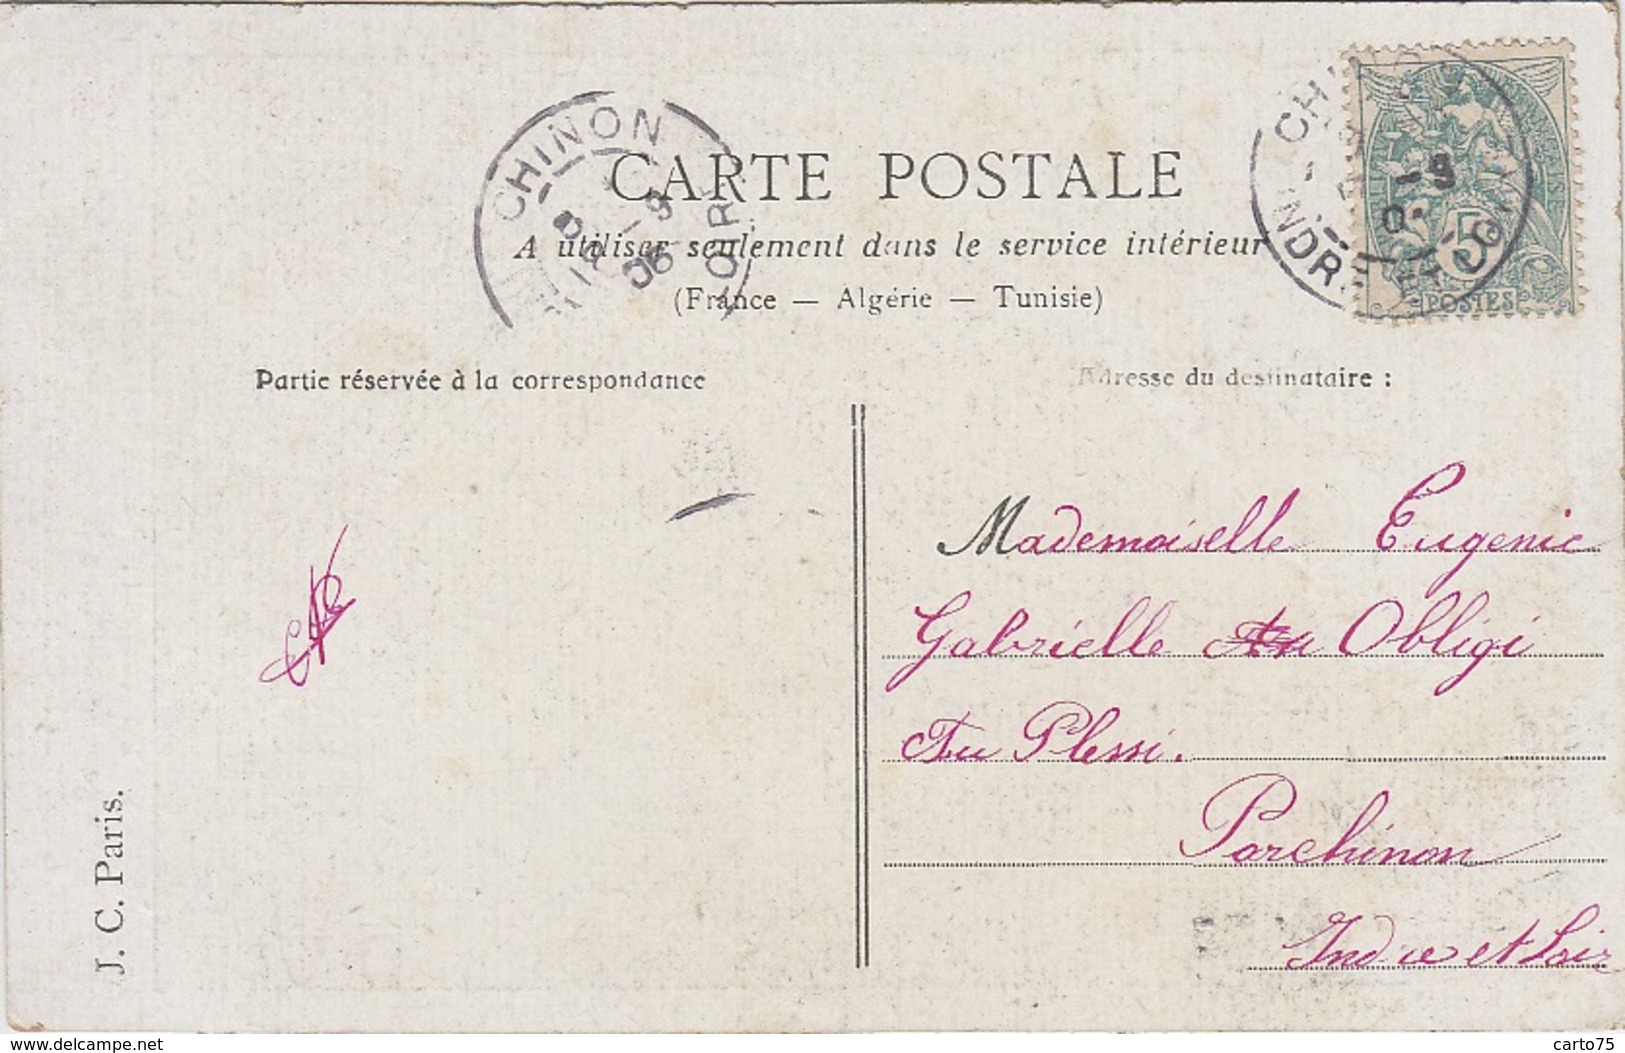 CHINON
CARTE POSTALE
A utiliser seulement dans le service intérieur
(France — Algérie — Tunisie)
5
POSTES
Partie réservée à la correspondance
Adresse du destinataire :
Mademoiselle Eugenie
Gabrielle Obligi
Au Plessi.
Parchinon
Indre et Loir
J. C. Paris.
http://www.delcampe.net
carto75